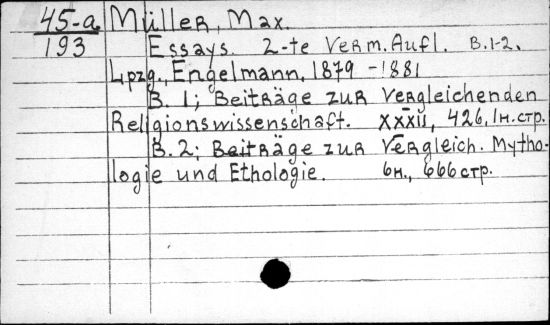 45-a Müller, Max.
193 Essays. 2-te Verm. Aufl. B. 1-2.
Lpzg., Engelmann, 1879 - 1881
B. 1; Beiträge zur Vergleichenden
Religionswissenschaft. XXXII, 426, 1н. стр.
B. 2; Beiträge zur Vergleich. Mytho-
logie und Ethologie. 6н., 666 стр.